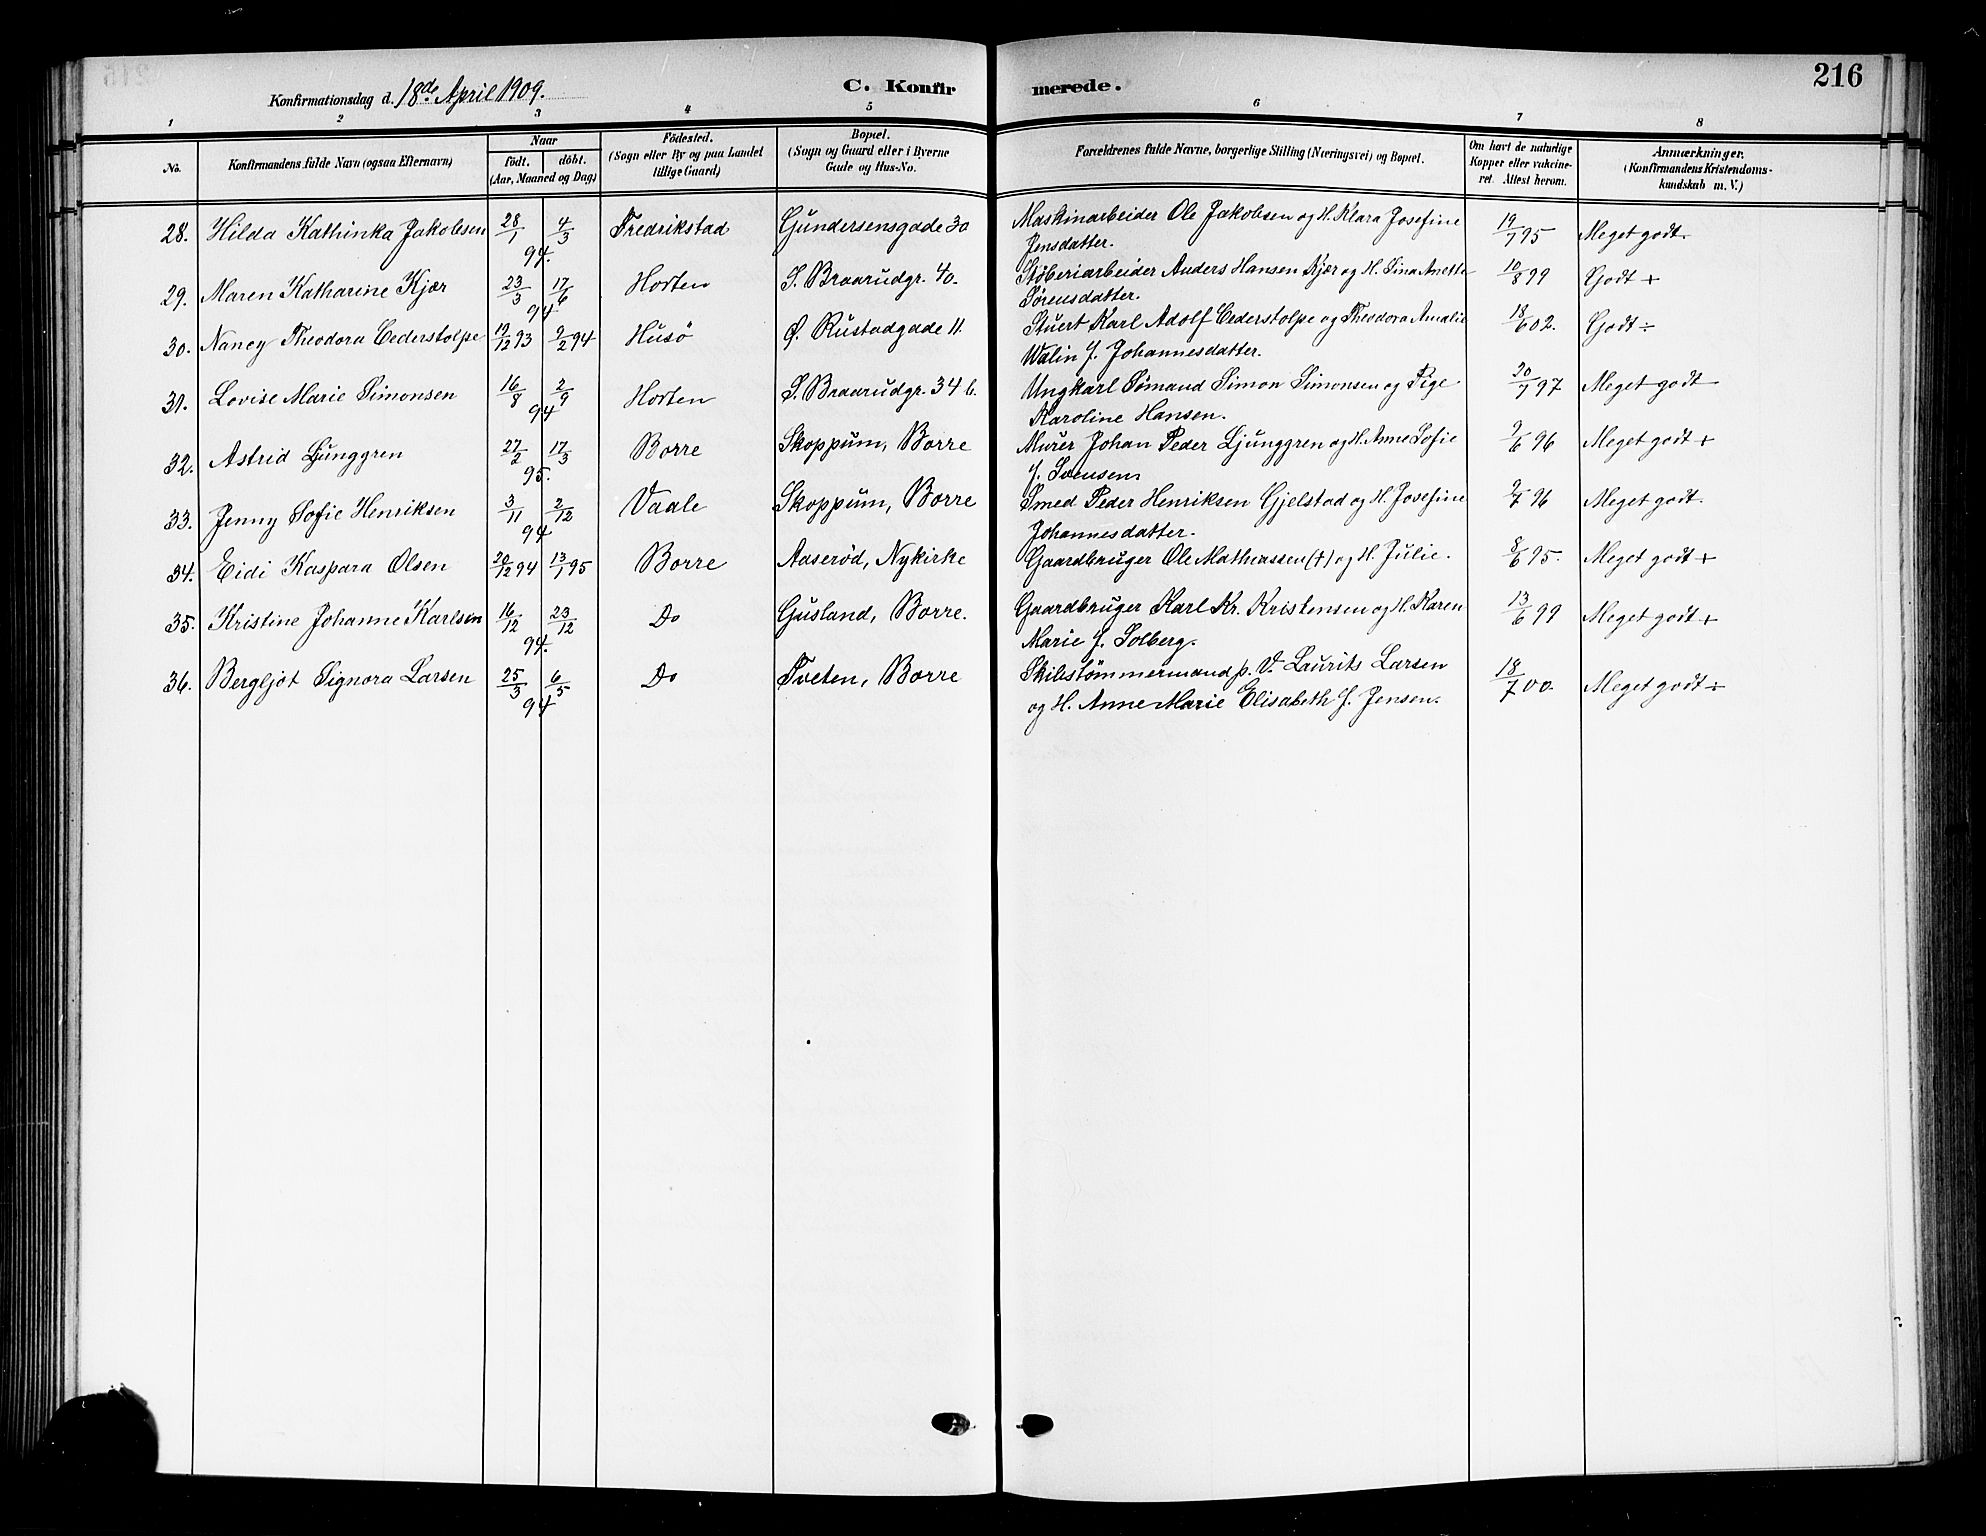 Konfirmationsdag d. 18de April 1909.
C. Konfir
merede.
216
1 2 3 4 5 6 7 8
No.
Konfirmandens fulde Navn (ogsaa Efternavn)
Naar
födt. döbt.
(Aar, Maaned og Dag)
Födested.
(Sogn eller By og paa Landet
tillige Gaard)
Bopæl.
(Sogn og Gaard eller i Byerne
Gade og Hus-No.
Forældrenes fulde Navne, borgerlige Stilling (Næringsvei) og Bopæl.
Om havt de naturlige
Kopper eller vakcine-
ret. Attest herom.
Anmærkninger.
(Konfirmandens Kristendoms-
kundskab m. V.)
28. Hilda Kathinka Jakobsen 28/1 4/3 94. Fredrikstad Gundersensgade 30 Maskinarbeider Ole Jakobsen og H. Klara Josefine 19/7 95 Meget godt
Jensdatter.
29. Maren Katharine Kjær 23/3 17/6 94 Horten S. Braarudgr. 40. Støberiarbeider Anders Hansen Kjær og H. Sina Anette 10/8 99 Godt +
Sørensdatter.
30. Nancy Theodora Cederstolpe 19/12 93 9/2 94 Husö Ø. Rustadgade 11. Stuert Karl Adolf Cederstolpe og Theodora Amalie 18/6 02. Godt ÷
Walin f. Johannesdatter.
31. Lovise Marie Simonsen 16/8 2/9 94 Horten S. Braarudgr. 34 b. Ungkarl Sømand Simon Simonsen og Pige 20/7 97 Meget godt
Karoline Hansen.
32. Astrid Ljunggren 27/2 17/3 95. Borre Skoppum, Borre Murer Johan Peder Ljunggren og H. Anne Sofie 9/6 96 Meget godt +
f. Svensen
33. Jenny Sofie Henriksen 3/11 2/12 94 Vaale Skoppum, Borre Smed Peder Henriksen Gjelstad og H. Josefine 9/7 96 Meget godt
Johannesdatter.
34. Eidi Kaspara Olsen 20/12 94 13/1 95 Borre Aaserød, Nykirke Gaardbruger Ole Mathiassen (†) og H. Julie. 8/6 95. Meget godt +
35. Kristine Johanne Karlsen 16/12 23/12 94. Do Gusland, Borre. Gaardbruger Karl Kr. Kristensen og H. Karen 13/6 99 Meget godt +
Marie f. Solberg.
36. Bergljot Signora Larsen 25/3 6/5 94 Do Tveten, Borre Skibstömmermand p. V. Laurits Larsen 18/7 00. Meget godt ÷
og H. Anne Marie Elisabeth f. Jensen.